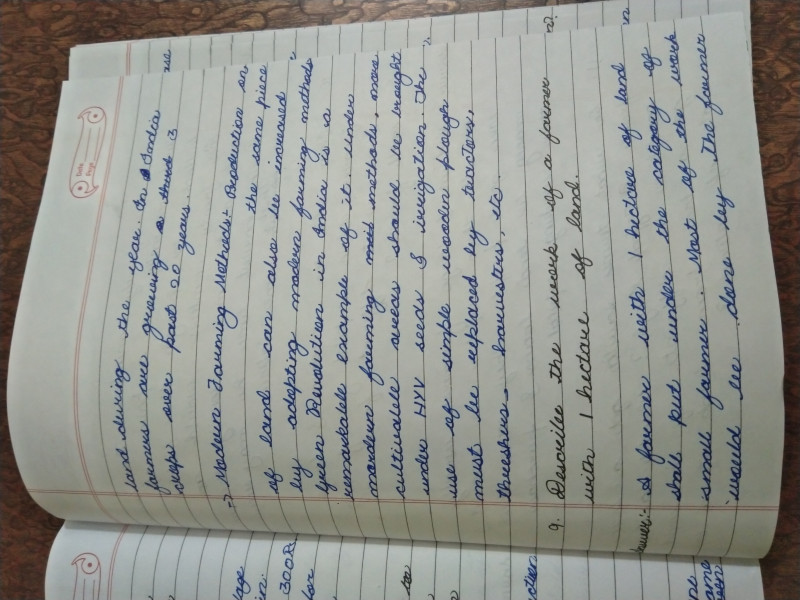 Date
Page
land during the year. In India
farmers are growing a third 3
crops over past 20 years.
→ Modern Farming Methods:- Production on
the same piece
of land can also be increased
by adopting modern farming methods
Green Revolution in India is a
remarkable example of it. under
mordern farming methods, more
cultivable areas should be brought
under HYV seeds & irrigation. The
use of simple wooden plough
must be replaced by tractors,
threshers, harvesters, etc.
9. Describe the work of a farmer
with 1 hectare of land.
Answer:- A farmer with 1 hectare of land
shall put under the category of
small farmer. Most of the work
would be done by the farmer
300Rs.